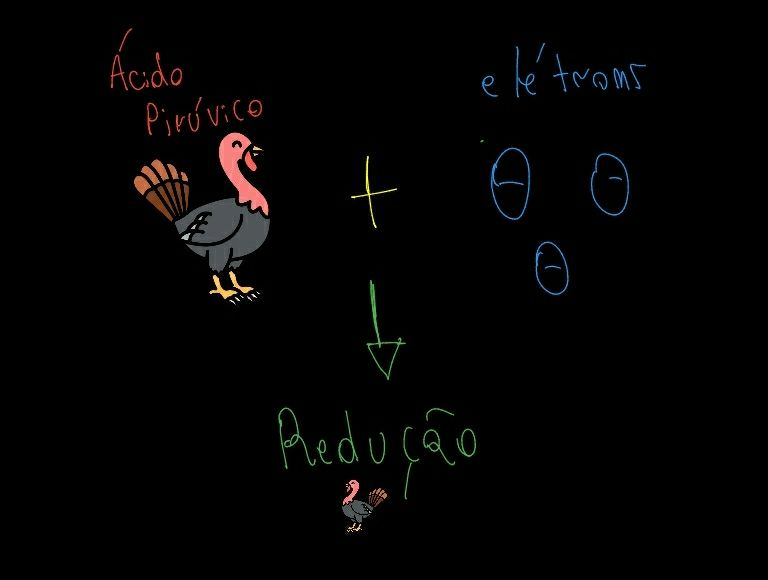 Ácido
Pirúvico
elétrons
+
Redução